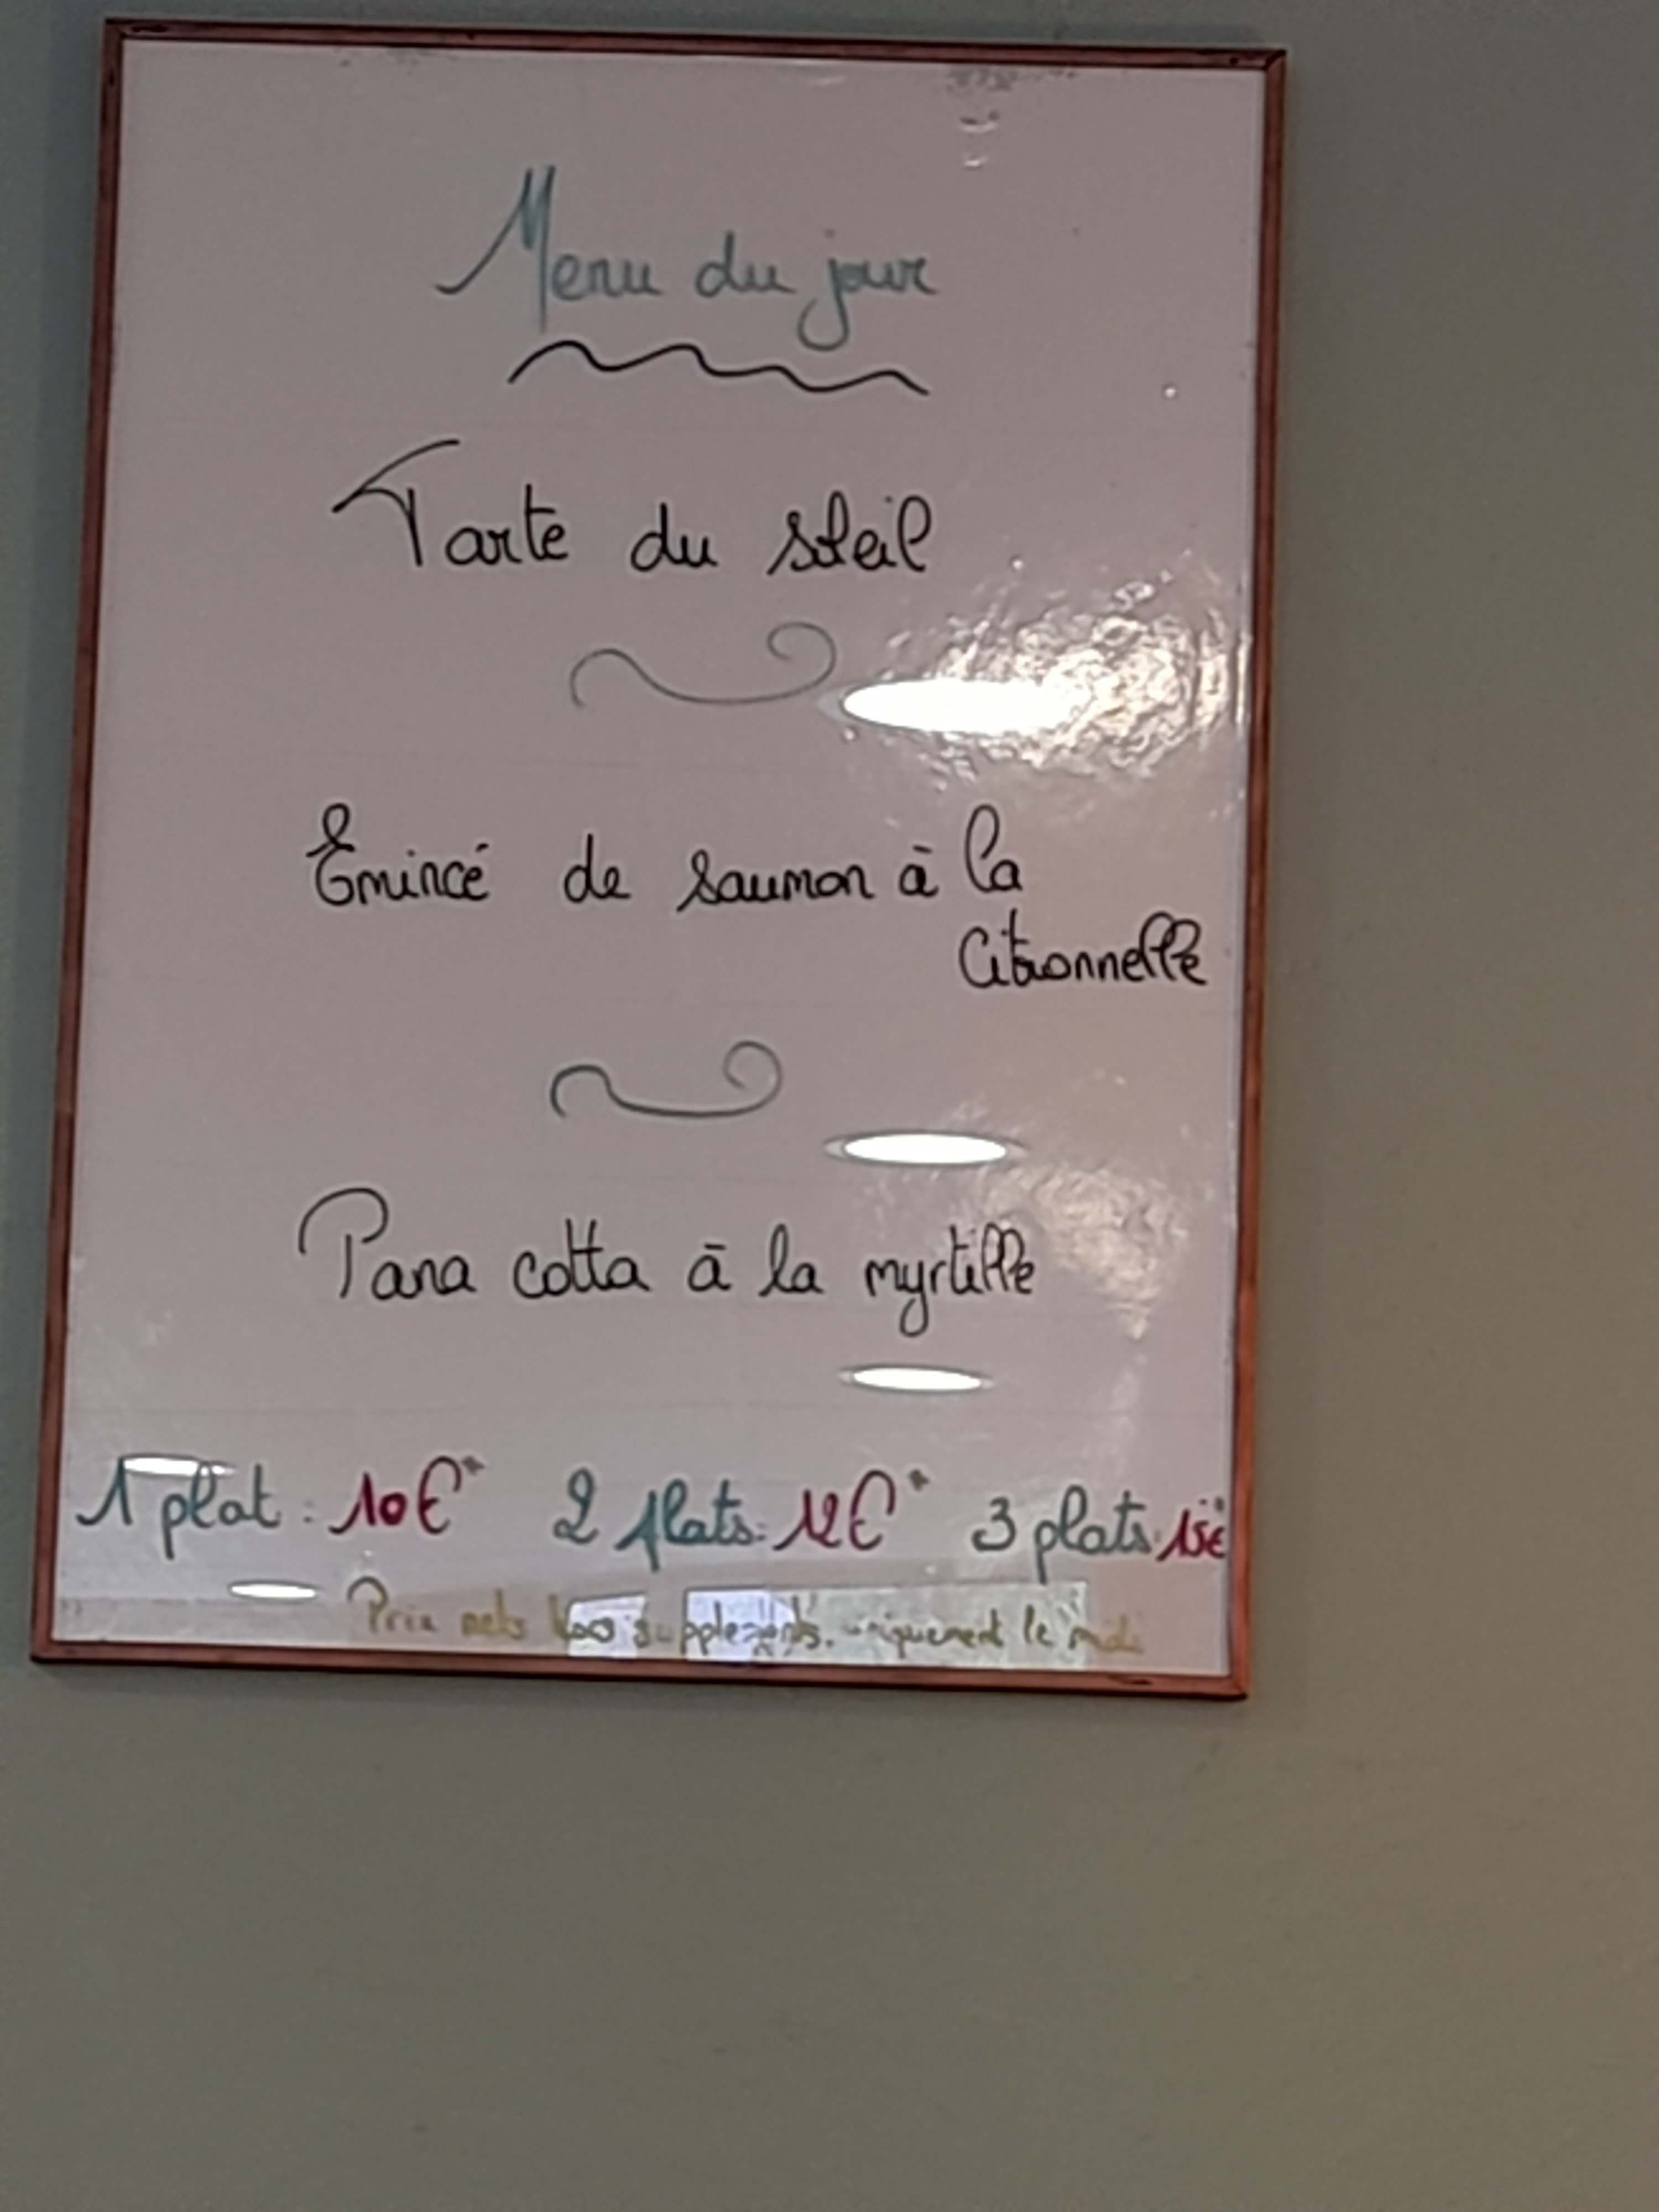 Menu du jour
Tarte du soleil
Emincé de saumon à la
Citronnelle
Pana cotta à la myrtille
1 plat : 10€* 2 plats : 12€* 3 plats : 15€*
Prix nets hors suppléments, uniquement le midi